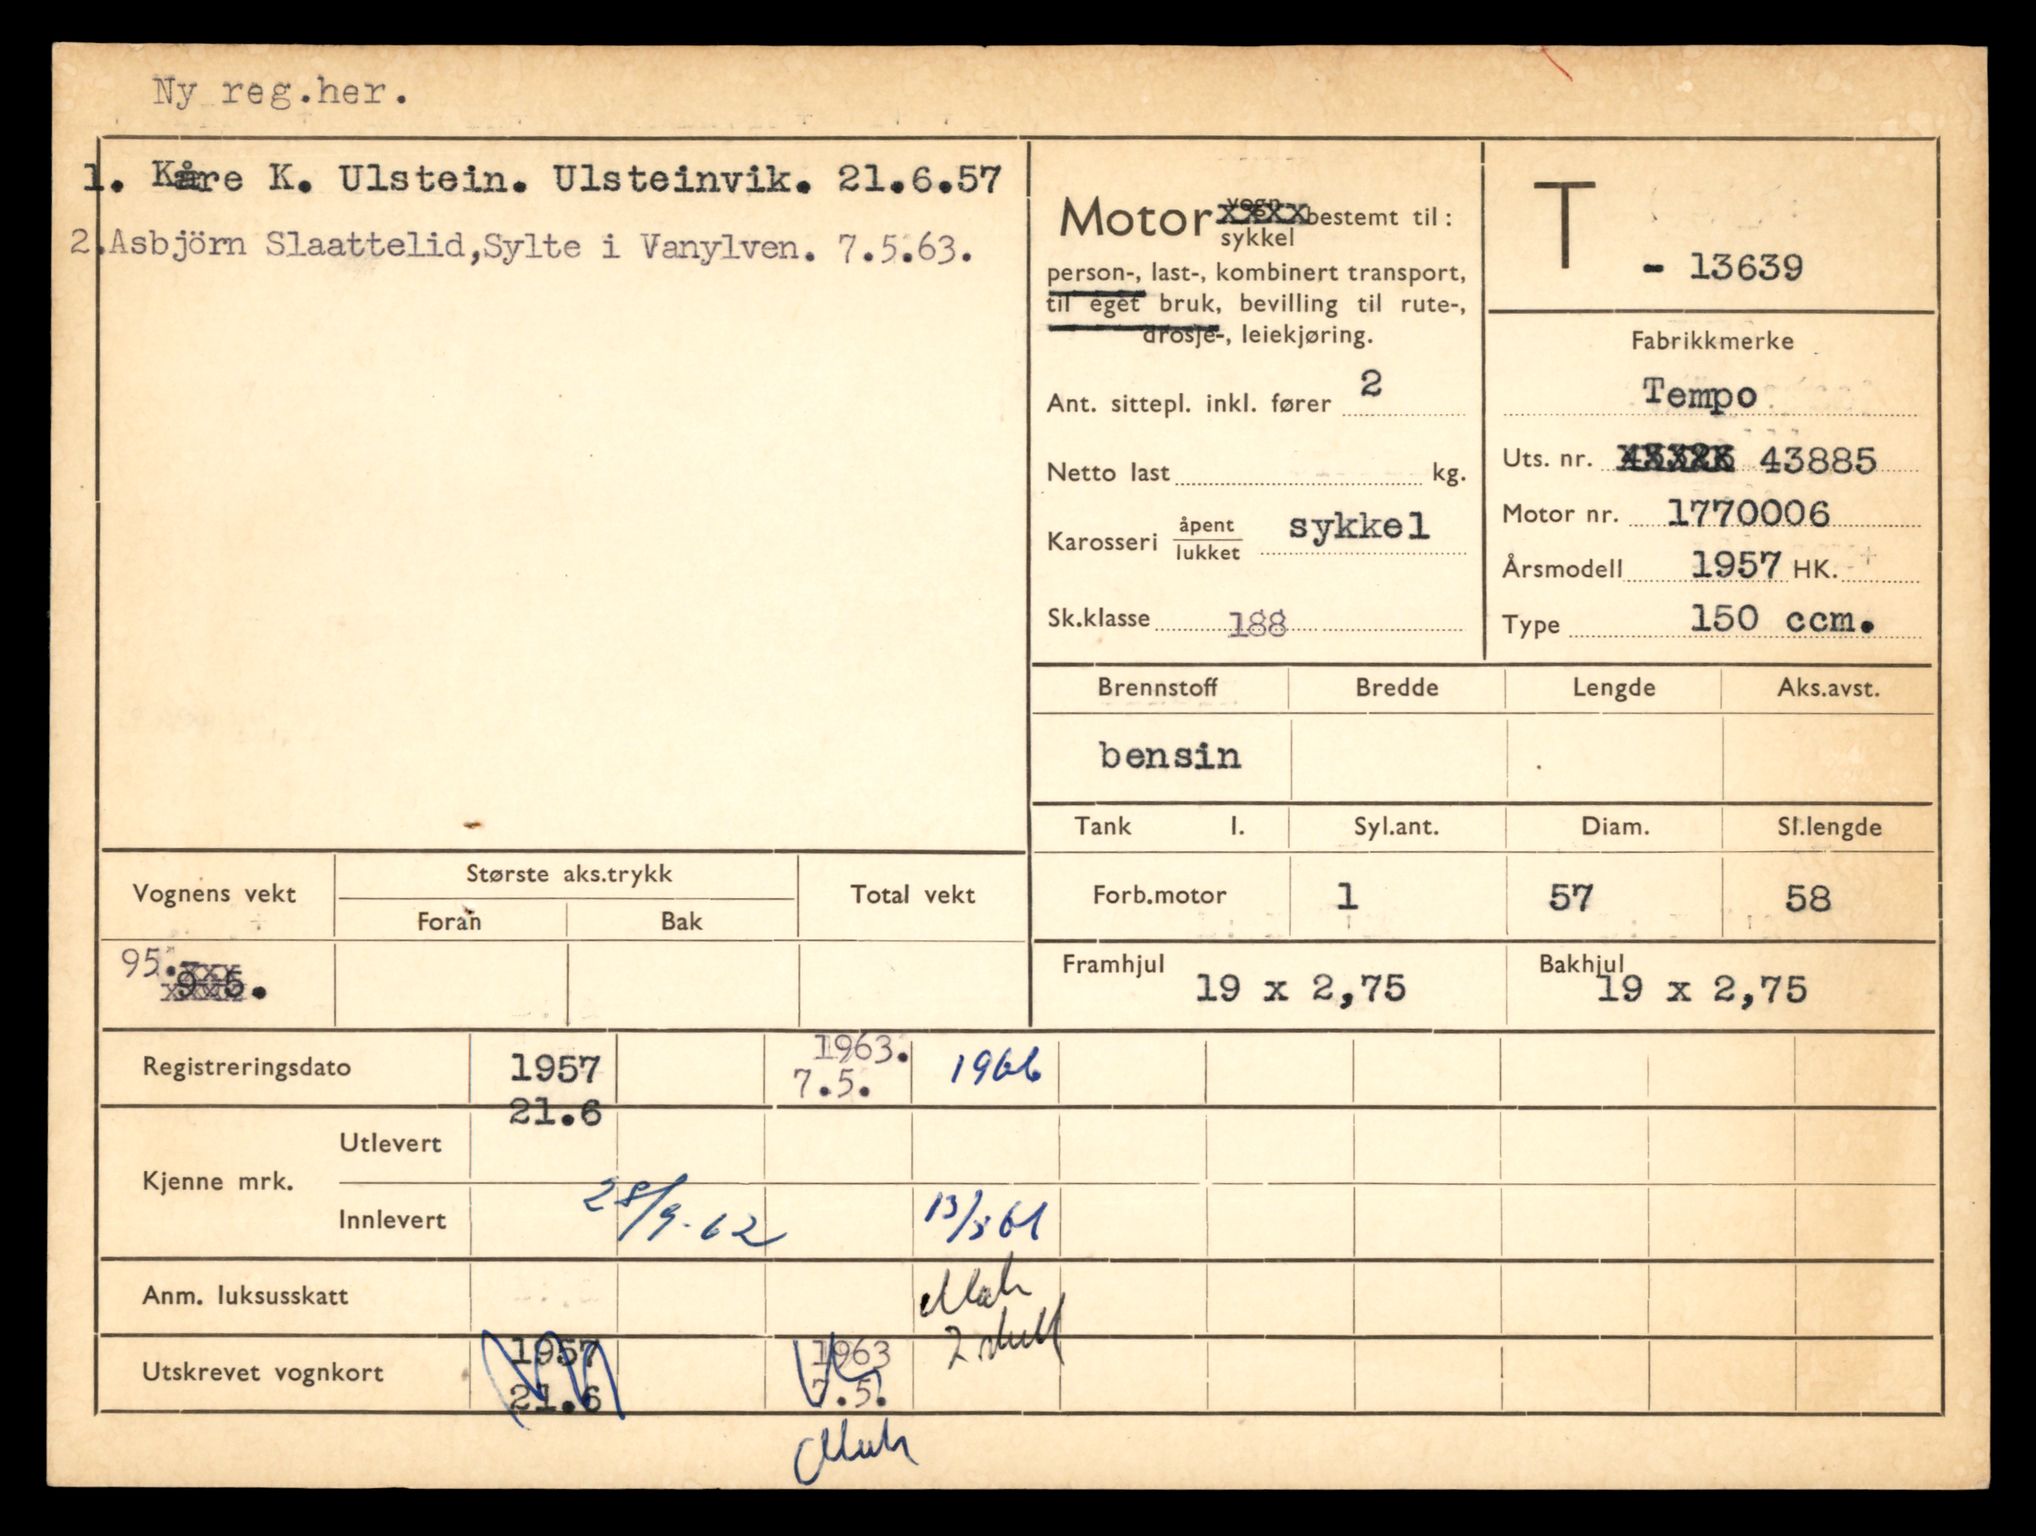 Ny reg.her.
1. Kåre K. Ulstein. Ulsteinvik. 21.6.57
2.Asbjörn Slaattelid,Sylte i Vanylven. 7.5.63.
Motor vogn sykkel bestemt til:
person-, last-, kombinert transport,
til eget bruk, bevilling til rute-,
drosje-, leiekjøring.
Ant. sittepl. inkl. fører 2
Netto last kg.
Karosseri åpent lukket sykkel
Sk.klasse 188
T - 13639
Fabrikkmerke
Tempo
Uts. nr. 43885
Motor nr. 1770006
Årsmodell 1957 HK.
Type 150 ccm.
Brennstoff Bredde Lengde Aks.avst.
bensin
Tank l. Syl.ant. Diam. Sl.lengde
Forb.motor 1 57 58
Framhjul 19 x 2,75 Bakhjul 19 x 2,75
Vognens vekt Største aks.trykk Total vekt
Foran Bak
95. 95.
Registreringsdato 1957 21.6 1963. 7.5. 1966
Kjenne mrk.
Utlevert
Innlevert 28/9-62
Anm. luksusskatt
Utskrevet vognkort 1957 21.6 1963 7.5.